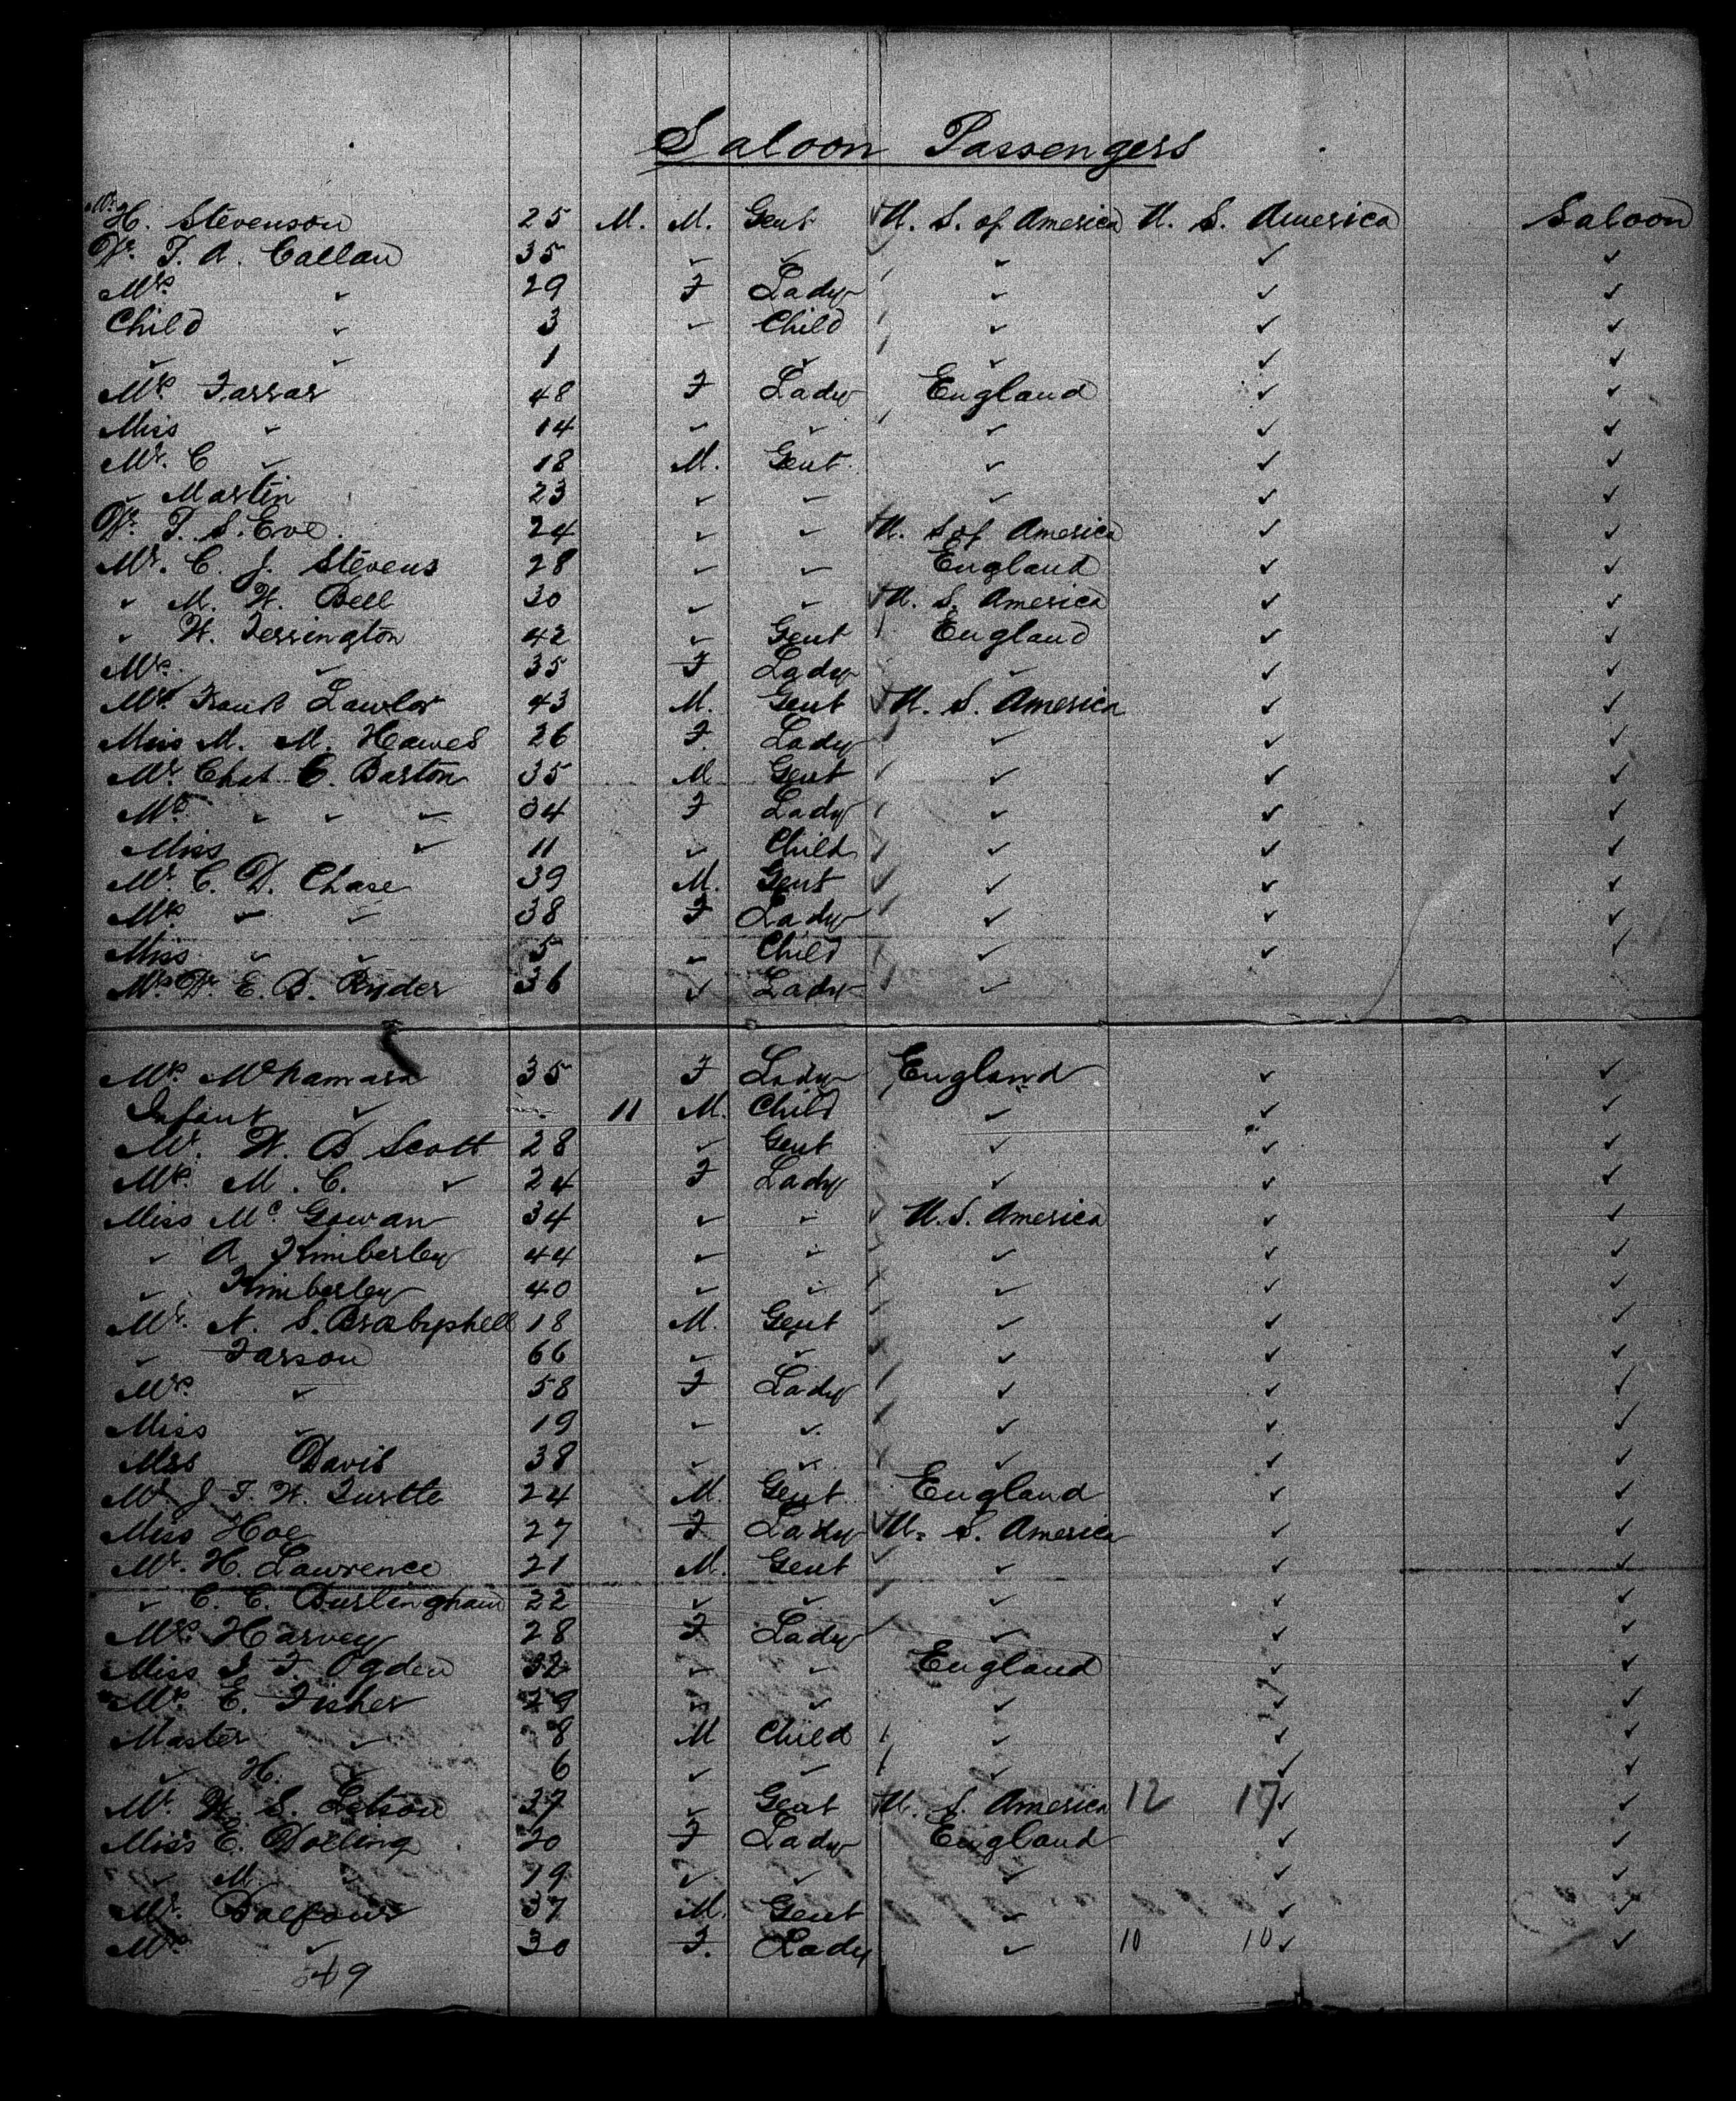 Saloon Passengers
Mr. H. Stevenson 25 M. M. Gent U. S. of America U. S. America Saloon
Dr. T. A. Callan 35 ✓ ✓ ✓ ✓ ✓
Mrs ✓ 29 F Lady ✓ ✓ ✓
Child ✓ 3 ✓ Child ✓ ✓ ✓
✓ ✓ 1 ✓ ✓ ✓ ✓
Mrs Farrar 48 F Lady England ✓ ✓
Miss ✓ 14 ✓ ✓ ✓ ✓ ✓
Mr. C ✓ 18 M. Gent. ✓ ✓ ✓
✓ Martin 23 ✓ ✓ ✓ ✓ ✓
Dr. S. Eve 24 ✓ ✓ U. S of America ✓ ✓
Mr. C. J. Stevens 28 ✓ ✓ England ✓ ✓
✓ M. W. Bell 30 ✓ ✓ U. S. America ✓ ✓
✓ W. Ferrington 42 ✓ Gent England ✓ ✓
Mrs. ✓ 35 F Lady ✓ ✓ ✓
Mr. Frank Lawlor 43 M. Gent U. S. America ✓ ✓
Miss M. M. Hawes 26 F. Lady ✓ ✓ ✓
Mr Chas C. Barton 35 M Gent ✓ ✓ ✓
Mrs ✓ ✓ ✓ 34 F Lady ✓ ✓ ✓
Miss ✓ 11 ✓ Child ✓ ✓ ✓
Mr. C. D. Chase 39 M. Gent ✓ ✓ ✓
Mrs ✓ ✓ 38 F Lady ✓ ✓ ✓
Miss ✓ ✓ 5 ✓ Child ✓ ✓ ✓
Mrs Dr. E. B. Ryder 36 ✓ Lady ✓
Mrs McNamara 35 F Lady England ✓ ✓
Infant ✓ 11 M. Child ✓ ✓ ✓
Mr. W. B Scott 28 ✓ Gent ✓ ✓ ✓
Mrs. M. C. ✓ 24 F Lady ✓ ✓ ✓
Miss Mc Gowan 34 ✓ ✓ U. S. America ✓ ✓
✓ A Kimberley 44 ✓ ✓ ✓ ✓ ✓
✓ Kimberley 40 ✓ ✓ ✓ ✓ ✓
Mr. N. S. 18 M. Gent ✓ ✓ ✓
✓ Farson 66 ✓ ✓ ✓ ✓ ✓
Mrs. ✓ 58 F Lady ✓ ✓ ✓
Miss ✓ 19 ✓ ✓ ✓ ✓ ✓
Mrs Davis 38 ✓ ✓ ✓ ✓ ✓
Mr J. T. W. 24 M. Gent England ✓ ✓
Miss Hoe 27 F Lady U. S. America ✓ ✓
Mr. H. Lawrence 21 M. Gent ✓ ✓ ✓
✓ C. C. Burlingham 22 ✓ ✓ ✓ ✓ ✓
Mrs Harvey 28 F Lady ✓ ✓ ✓
Miss F. Ogden 32 ✓ ✓ England ✓ ✓
Mrs E. Fisher 29 ✓ ✓ ✓ ✓ ✓
Master ✓ 8 M Child ✓ ✓ ✓
✓ H. ✓ 6 ✓ ✓ ✓ ✓ ✓
Mr. W. S. Letson 37 ✓ Gent U. S. America 12 17 ✓ ✓
Miss E. Dolling 20 F Lady England ✓ ✓
✓ M ✓ 19 ✓ ✓ ✓ ✓ ✓
Mr. Balfour 37 M. Gent ✓ ✓ ✓
Mrs ✓ 30 F. Lady ✓ 10 10 ✓ ✓
49